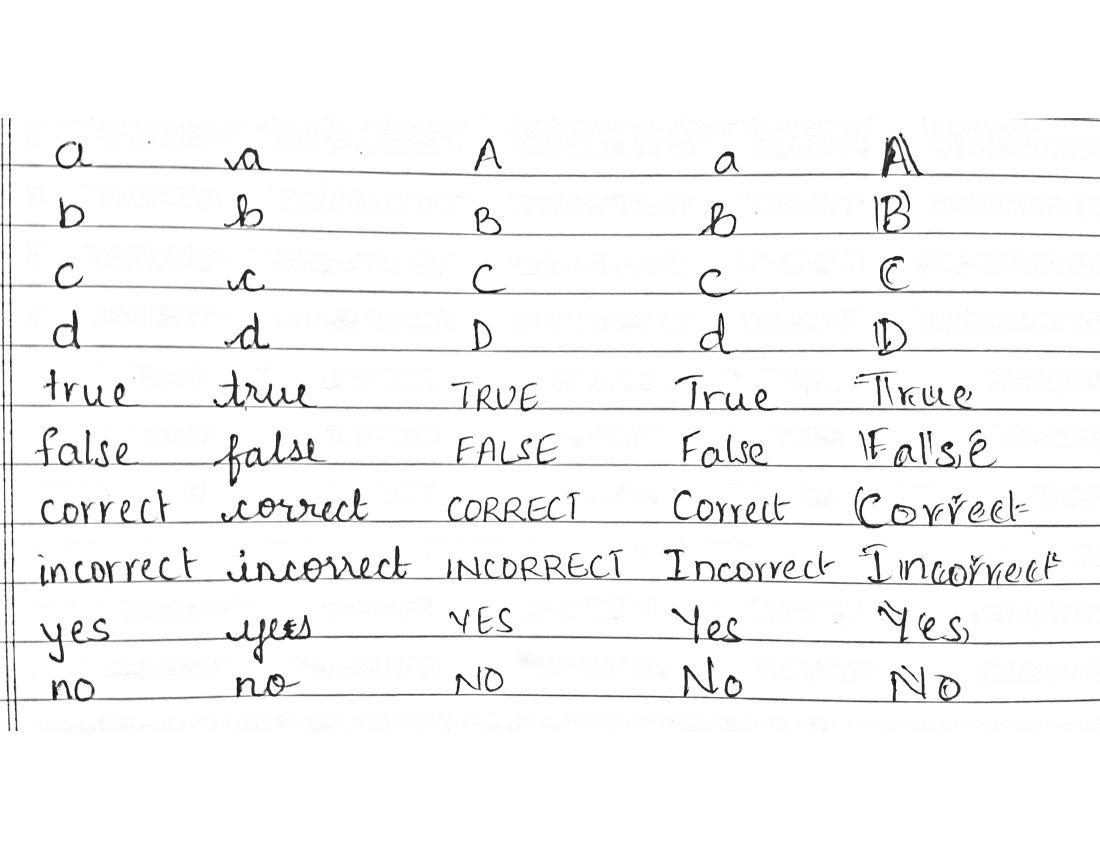 a a A a A
b b B B B
c c C C C
d d D d D
true true TRUE True True
false false FALSE False False
correct correct CORRECT Correct Correct
incorrect incorrect INCORRECT Incorrect Incorrect
yes yes YES Yes Yes
no no NO No No